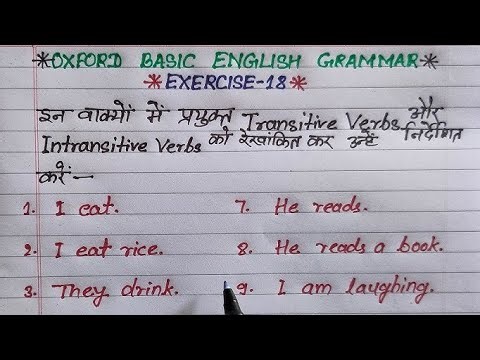 *OXFORD BASIC ENGLISH GRAMMAR*
*EXERCISE-18*
इन वाक्यों में प्रयुक्त Transitive Verbs और
Intransitive Verbs को रेखांकित कर उन्हें निर्देशित
करें:-
1. I eat.
2. I eat rice.
3. They drink.
7. He reads.
8. He reads a book.
9. I am laughing.